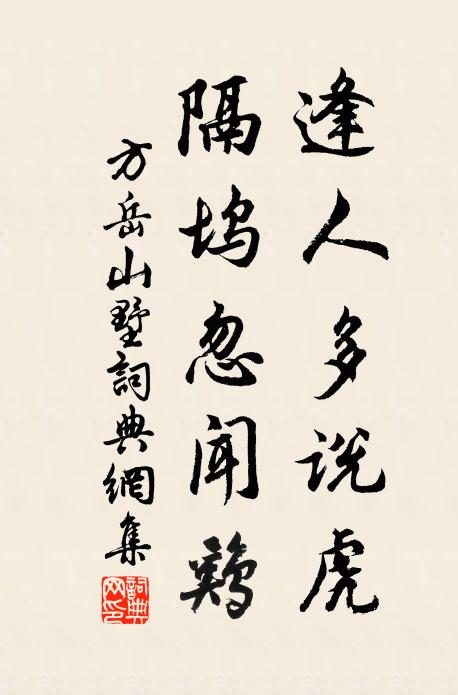 逢人多说虎
隔坞忽闻鸡
方岳山墅詞典網集
詞典网印